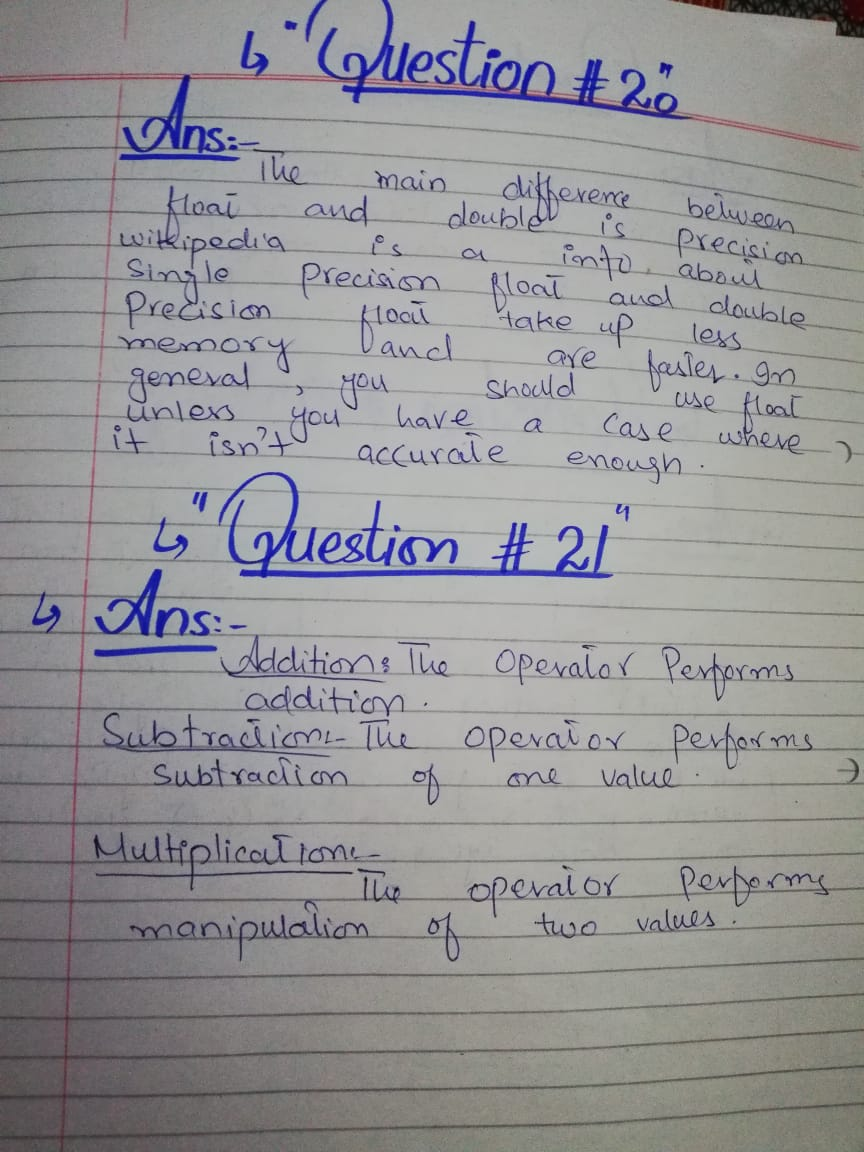 ↳ "Question #20"
Ans:-
The main difference between
float and double is precision
wikipedia is a info about
Single precision float and double
Precision float take up less
memory and are faster. In
general, you should use float
unless you have a case where
it isn't accurate enough.
↳ "Question # 21"
↳ Ans:-
Addition: The operator Performs
addition.
Subtraction:- The operator performs
Subtraction of one value.
Multiplication:-
The operator Performs
manipulation of two values.